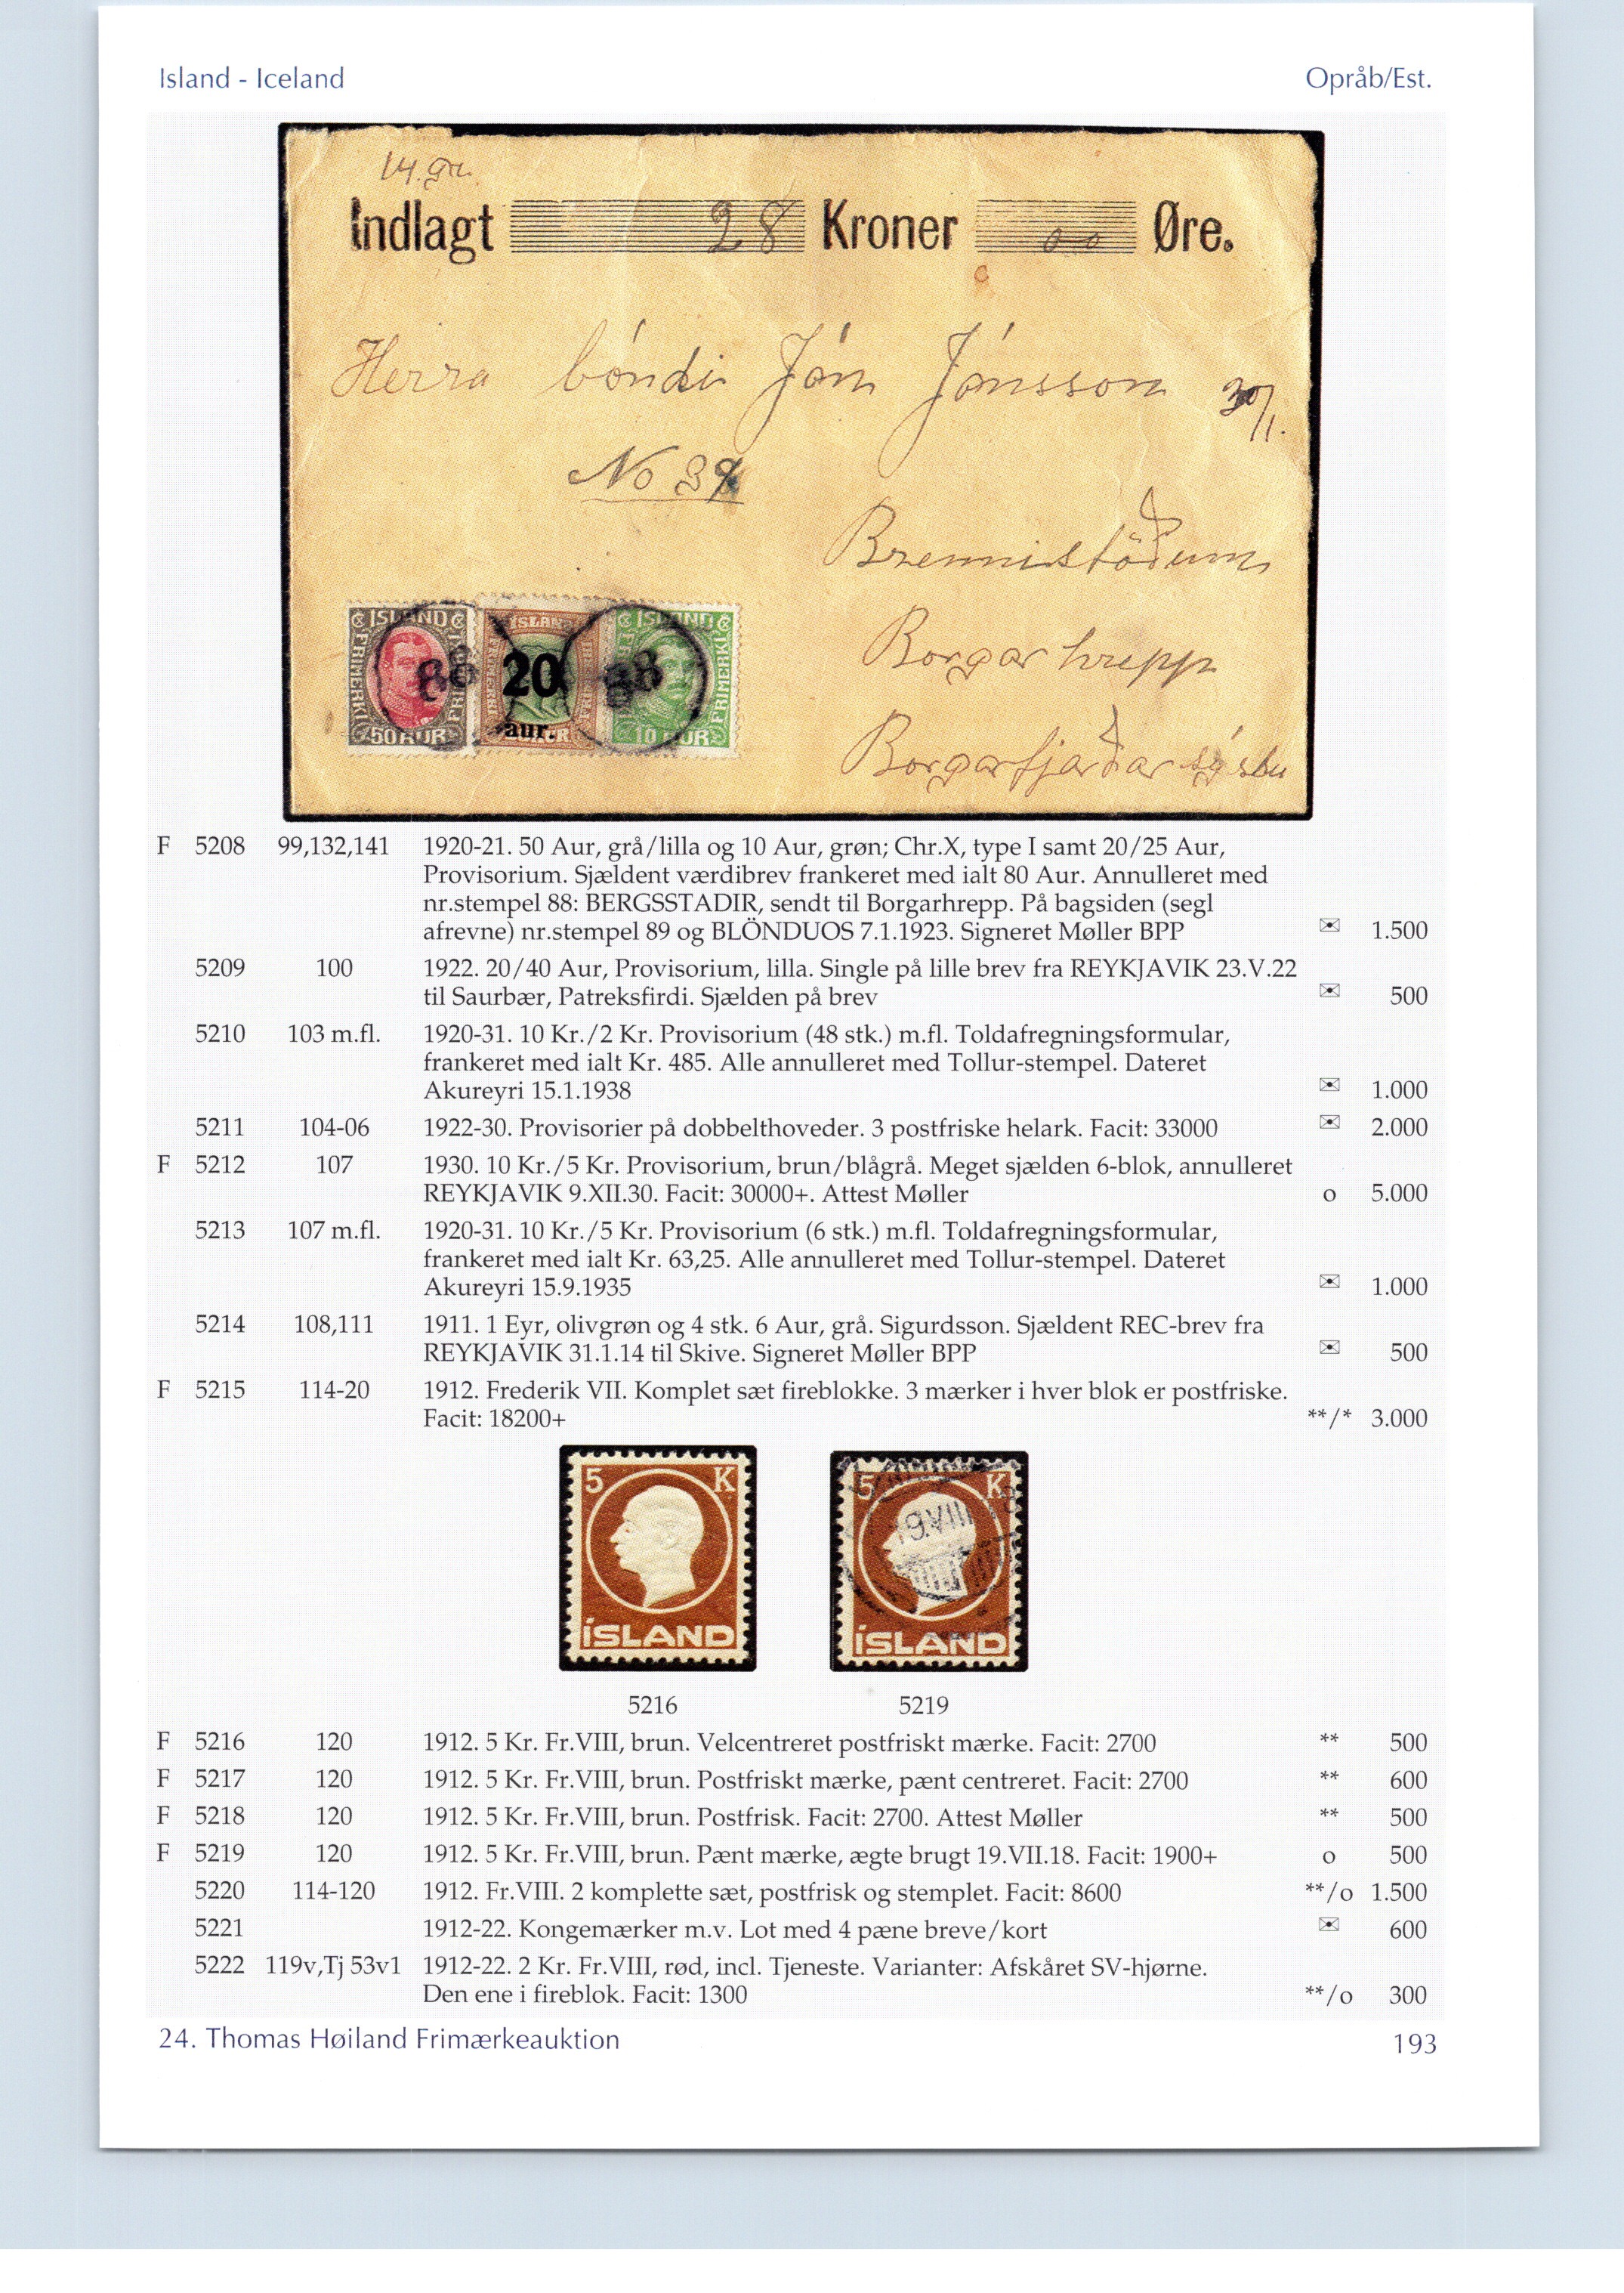 Island - Iceland
Opråb/Est.
14. gr.
Indlagt 28 Kroner 00 Øre.
Herra bóndi Jón Jónsson 30/1.
No 38
Brennistöðum
Borgarhrepp
Borgarfjarðarsýslu
ÍSLAND ÍSLAND ÍSLAND
FRIMERKI FRIMERKI
88 20 88
50 AUR aur. 10 AUR
F 5208 99,132,141 1920-21. 50 Aur, grå/lilla og 10 Aur, grøn; Chr.X, type I samt 20/25 Aur,
Provisorium. Sjældent værdibrev frankeret med ialt 80 Aur. Annulleret med
nr.stempel 88: BERGSSTADIR, sendt til Borgarhrepp. På bagsiden (segl
afrevne) nr.stempel 89 og BLÖNDUOS 7.1.1923. Signeret Møller BPP ✉ 1.500
5209 100 1922. 20/40 Aur, Provisorium, lilla. Single på lille brev fra REYKJAVIK 23.V.22
til Saurbær, Patreksfirdi. Sjælden på brev ✉ 500
5210 103 m.fl. 1920-31. 10 Kr./2 Kr. Provisorium (48 stk.) m.fl. Toldafregningsformular,
frankeret med ialt Kr. 485. Alle annulleret med Tollur-stempel. Dateret
Akureyri 15.1.1938 ✉ 1.000
5211 104-06 1922-30. Provisorier på dobbelthoveder. 3 postfriske helark. Facit: 33000 ✉ 2.000
F 5212 107 1930. 10 Kr./5 Kr. Provisorium, brun/blågrå. Meget sjælden 6-blok, annulleret
REYKJAVIK 9.XII.30. Facit: 30000+. Attest Møller o 5.000
5213 107 m.fl. 1920-31. 10 Kr./5 Kr. Provisorium (6 stk.) m.fl. Toldafregningsformular,
frankeret med ialt Kr. 63,25. Alle annulleret med Tollur-stempel. Dateret
Akureyri 15.9.1935 ✉ 1.000
5214 108,111 1911. 1 Eyr, olivgrøn og 4 stk. 6 Aur, grå. Sigurdsson. Sjældent REC-brev fra
REYKJAVIK 31.1.14 til Skive. Signeret Møller BPP ✉ 500
F 5215 114-20 1912. Frederik VII. Komplet sæt fireblokke. 3 mærker i hver blok er postfriske.
Facit: 18200+ **/* 3.000
5 K 5 K
19.VIII
ÍSLAND ÍSLAND
5216 5219
F 5216 120 1912. 5 Kr. Fr.VIII, brun. Velcentreret postfriskt mærke. Facit: 2700 ** 500
F 5217 120 1912. 5 Kr. Fr.VIII, brun. Postfriskt mærke, pænt centreret. Facit: 2700 ** 600
F 5218 120 1912. 5 Kr. Fr.VIII, brun. Postfrisk. Facit: 2700. Attest Møller ** 500
F 5219 120 1912. 5 Kr. Fr.VIII, brun. Pænt mærke, ægte brugt 19.VII.18. Facit: 1900+ o 500
5220 114-120 1912. Fr.VIII. 2 komplette sæt, postfrisk og stemplet. Facit: 8600 **/o 1.500
5221 1912-22. Kongemærker m.v. Lot med 4 pæne breve/kort ✉ 600
5222 119v,Tj 53v1 1912-22. 2 Kr. Fr.VIII, rød, incl. Tjeneste. Varianter: Afskåret SV-hjørne.
Den ene i fireblok. Facit: 1300 **/o 300
24. Thomas Høiland Frimærkeauktion
193